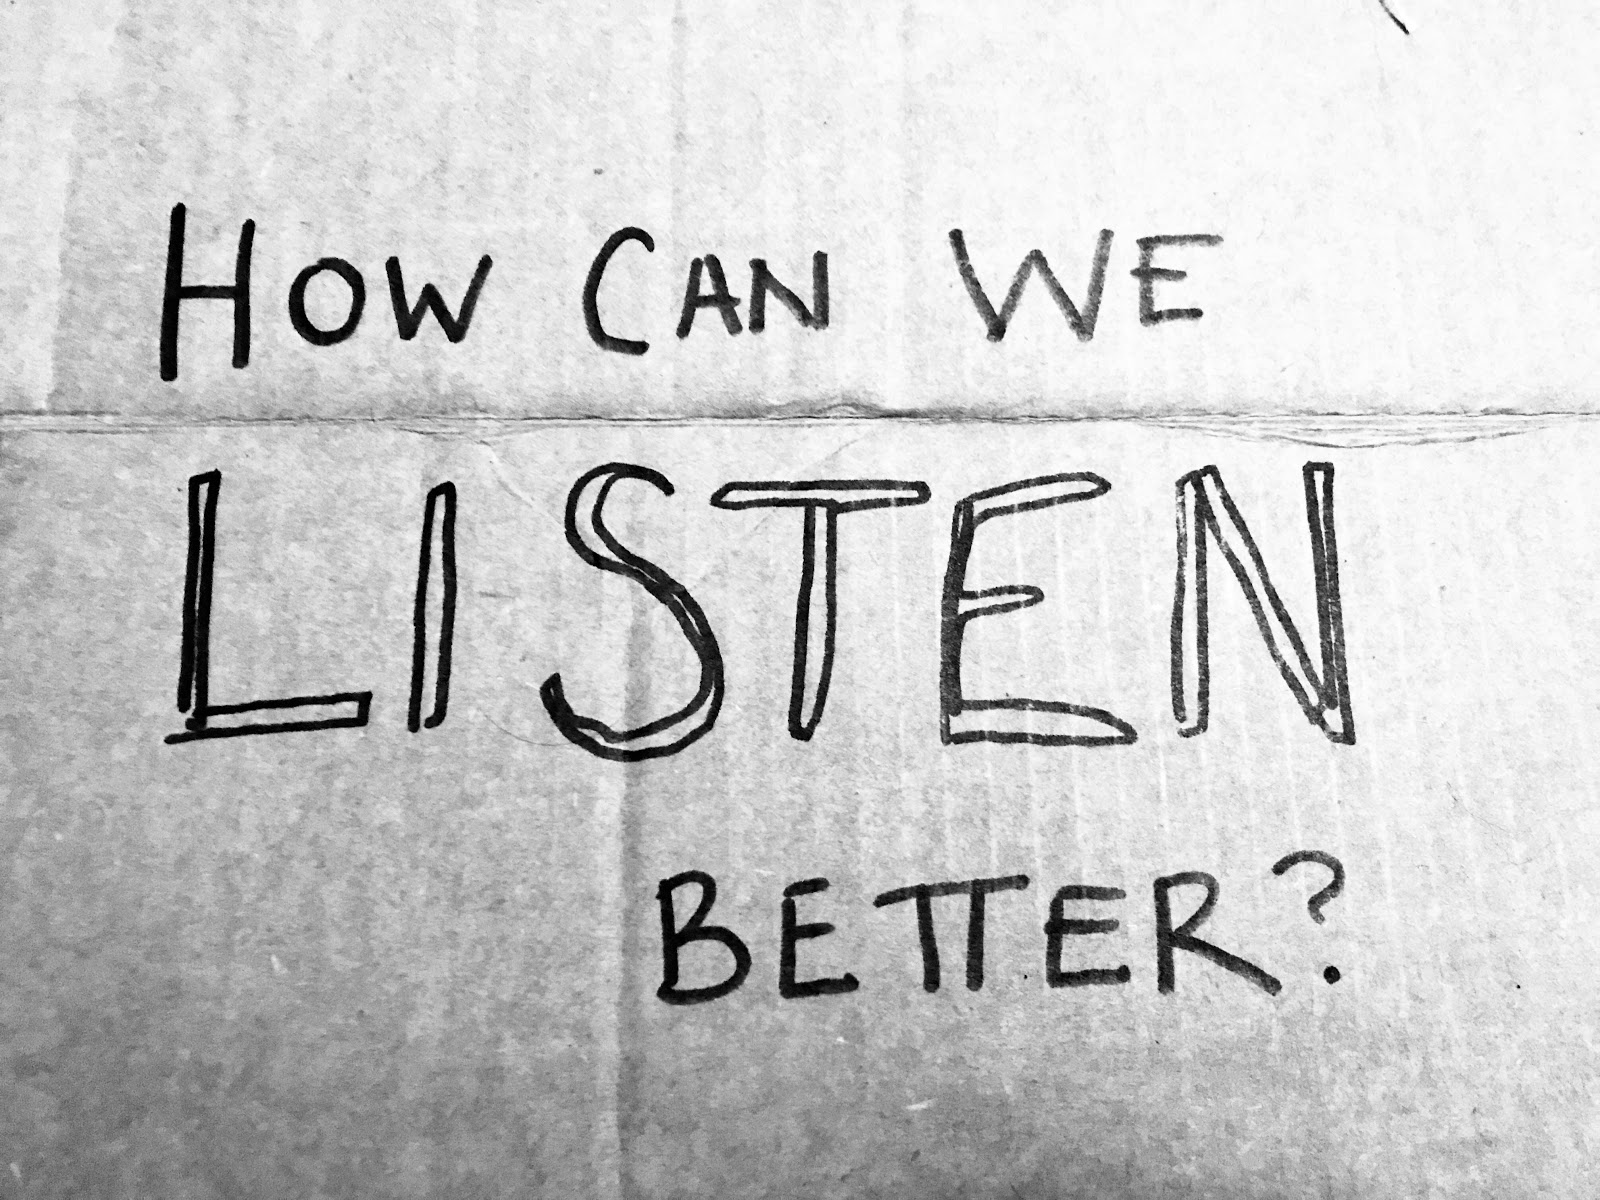 HOW CAN WE
LISTEN
BETTER?